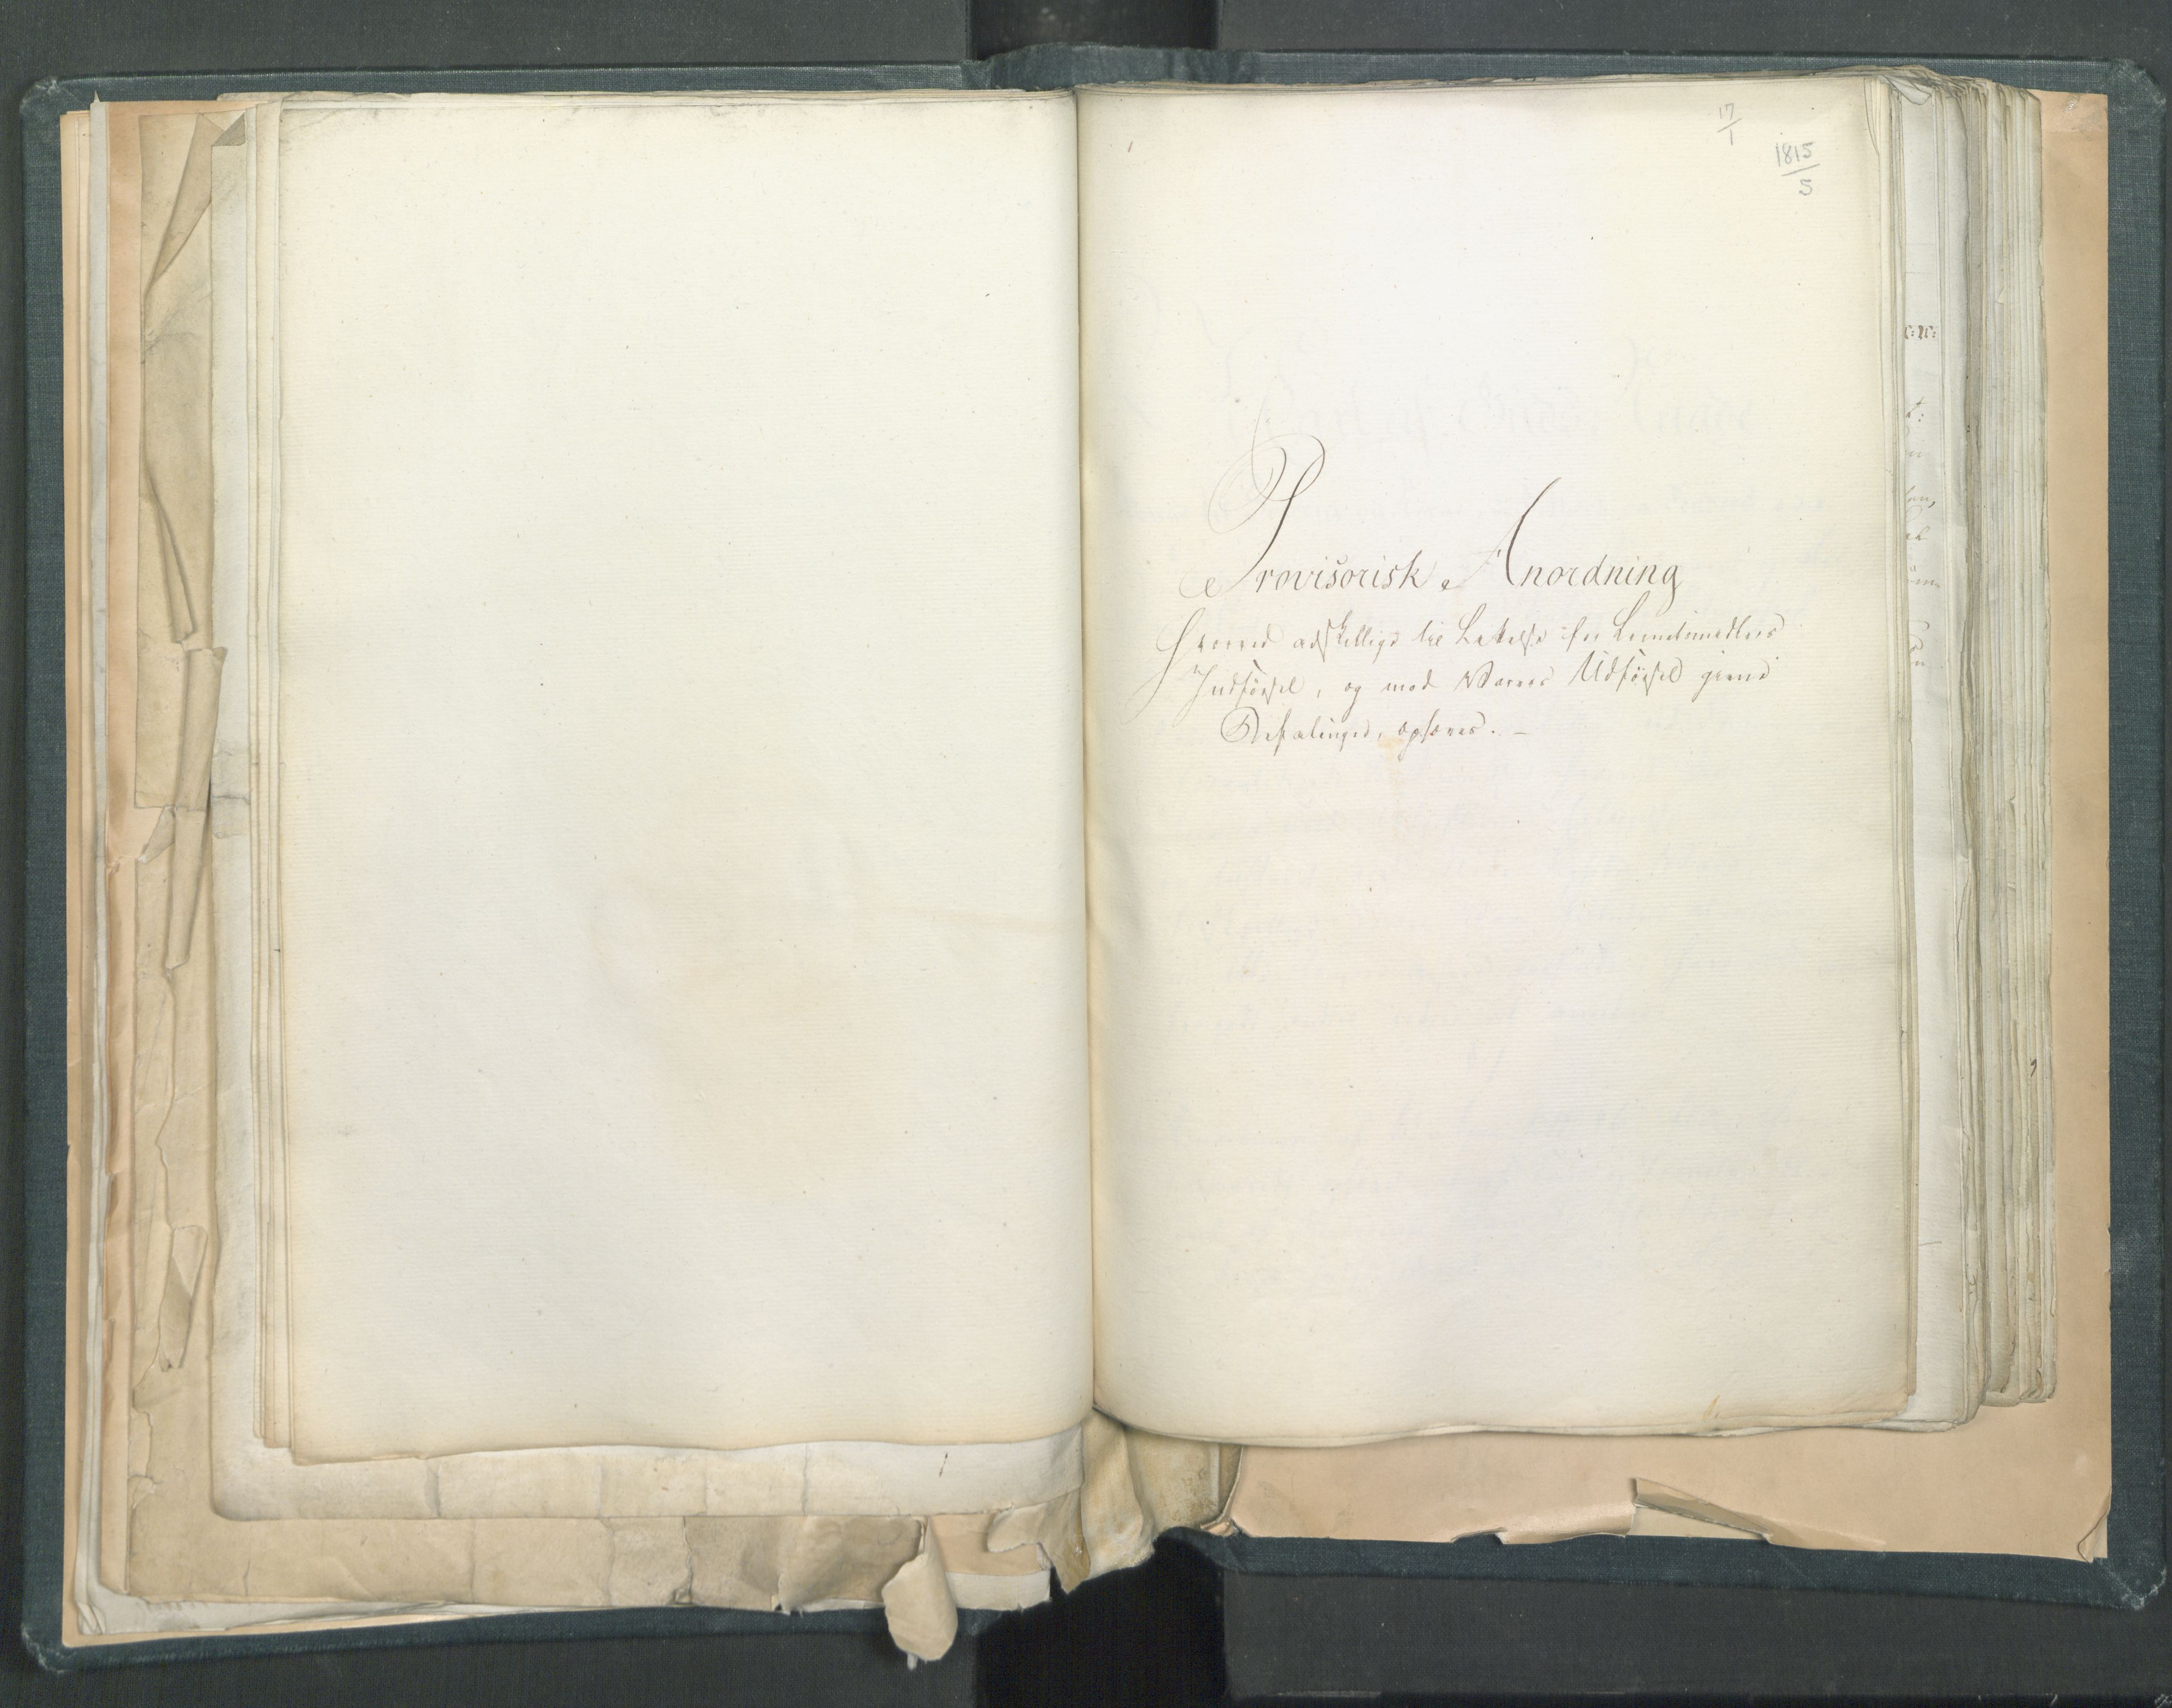 17
1
1815
5
Provisorisk Anordning
Hvorved adskillige til Lettelse for Levnetsmidlers
Indførsel, og mod Varers Udførsel givne
Befalinger, ophæves. –